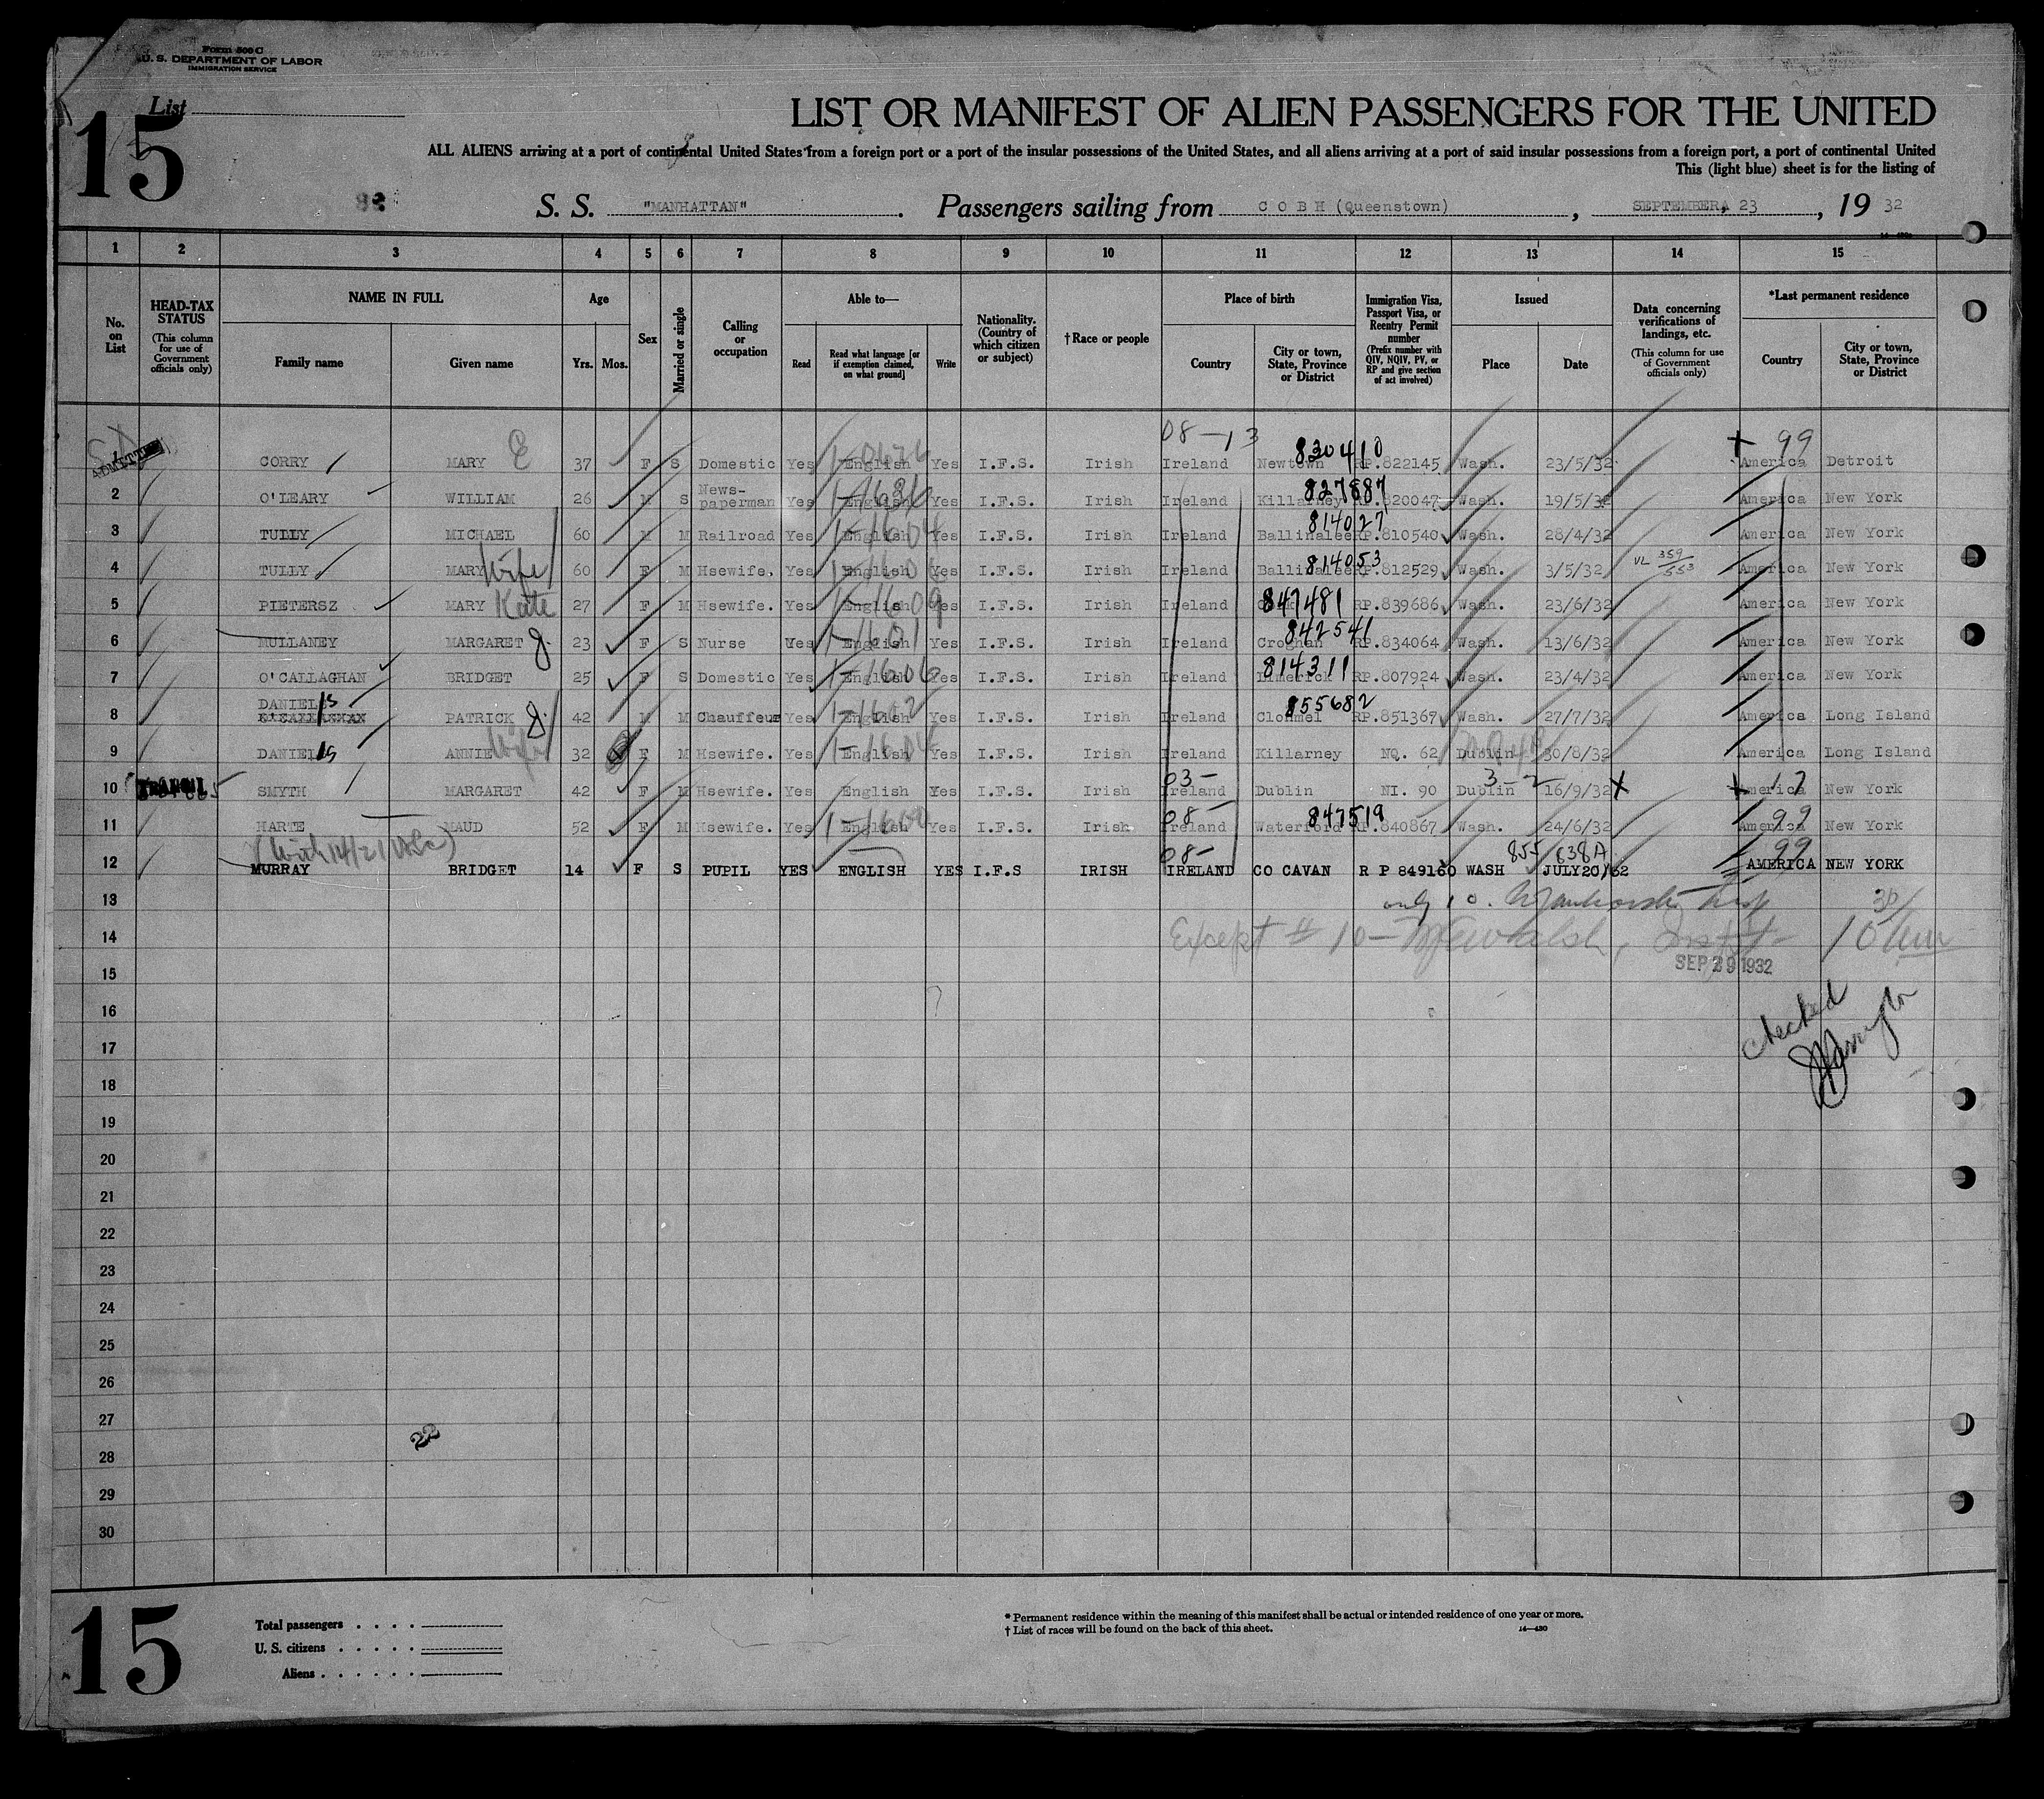 Form 500 C
U. S. DEPARTMENT OF LABOR
IMMIGRATION SERVICE
List
15
LIST OR MANIFEST OF ALIEN PASSENGERS FOR THE UNITED
ALL ALIENS arriving at a port of continental United States from a foreign port or a port of the insular possessions of the United States, and all aliens arriving at a port of said insular possessions from a foreign port, a port of continental United
This (light blue) sheet is for the listing of
S. S. "MANHATTAN". Passengers sailing from C O B H (Queenstown), SEPTEMBER, 23, 19 32
1 2 3 4 5 6 7 8 9 10 11 12 13 14 15
No. on List
HEAD-TAX STATUS (This column for use of Government officials only)
NAME IN FULL Family name Given name
Age Yrs. Mos.
Sex
Married or single
Calling or occupation
Able to— Read Read what language [or if exemption claimed, on what ground] Write
Nationality. (Country of which citizen or subject)
†Race or people
Place of birth Country City or town, State, Province or District
Immigration Visa, Passport Visa, or Reentry Permit number (Prefix number with QIV, NQIV, PV, or RP and give section of act involved)
Issued Place Date
Data concerning verifications of landings, etc. (This column for use of Government officials only)
*Last permanent residence Country City or town, State, Province or District
08-13 830410 99
ADMITTED CORRY MARY E 37 F S Domestic Yes English Yes I.F.S. Irish Ireland Newtown RP.822145 Wash. 23/5/32 America Detroit
827887
2 O'LEARY WILLIAM 26 M S News-paperman Yes English Yes I.F.S. Irish Ireland Killarney RP.820047 Wash. 19/5/32 America New York
814027
3 TULLY MICHAEL 60 M M Railroad Yes English Yes I.F.S. Irish Ireland Ballinalee RP.810540 Wash. 28/4/32 America New York
814053 VL 359/553
4 TULLY MARY Wife 60 F M Hsewife. Yes English Yes I.F.S. Irish Ireland Ballinalee RP.812529 Wash. 3/5/32 America New York
847481
5 PIETERSZ MARY Kate 27 F M Hsewife. Yes English Yes I.F.S. Irish Ireland RP.839686 Wash. 23/6/32 America New York
842541
6 MULLANEY MARGARET J. 23 F S Nurse Yes English Yes I.F.S. Irish Ireland Croghan RP.834064 Wash. 13/6/32 America New York
814311
7 O'CALLAGHAN BRIDGET 25 F S Domestic Yes English Yes I.F.S. Irish Ireland Limerick RP.807924 Wash. 23/4/32 America New York
855682
8 DANIELS PATRICK J. 42 M M Chauffeur Yes English Yes I.F.S. Irish Ireland Clonmel RP.851367 Wash. 27/7/32 America Long Island
9 DANIELS ANNIE Wife 32 F M Hsewife. Yes English Yes I.F.S. Irish Ireland Killarney NQ. 62 Dublin 30/8/32 America Long Island
03- 3-2
10 TRANSIT SMYTH MARGARET 42 F M Hsewife. Yes English Yes I.F.S. Irish Ireland Dublin NI. 90 Dublin 16/9/32 America New York
08- 847519 99
11 HARTE MAUD 52 F M Hsewife. Yes English Yes I.F.S. Irish Ireland Waterford RP.840867 Wash. 24/6/32 America New York
08- 855 638A 99
12 MURRAY BRIDGET 14 F S PUPIL YES ENGLISH YES I.F.S IRISH IRELAND CO CAVAN R P 849160 WASH JULY20/32 AMERICA NEW YORK
13 only 10.
14 Except # 10 -
15 SEP 29 1932
16 checked
17
18
19
20
21
22
23
24
25
26
27
28
29
30
15
Total passengers
U. S. citizens
Aliens
* Permanent residence within the meaning of this manifest shall be actual or intended residence of one year or more.
† List of races will be found on the back of this sheet.
14—430